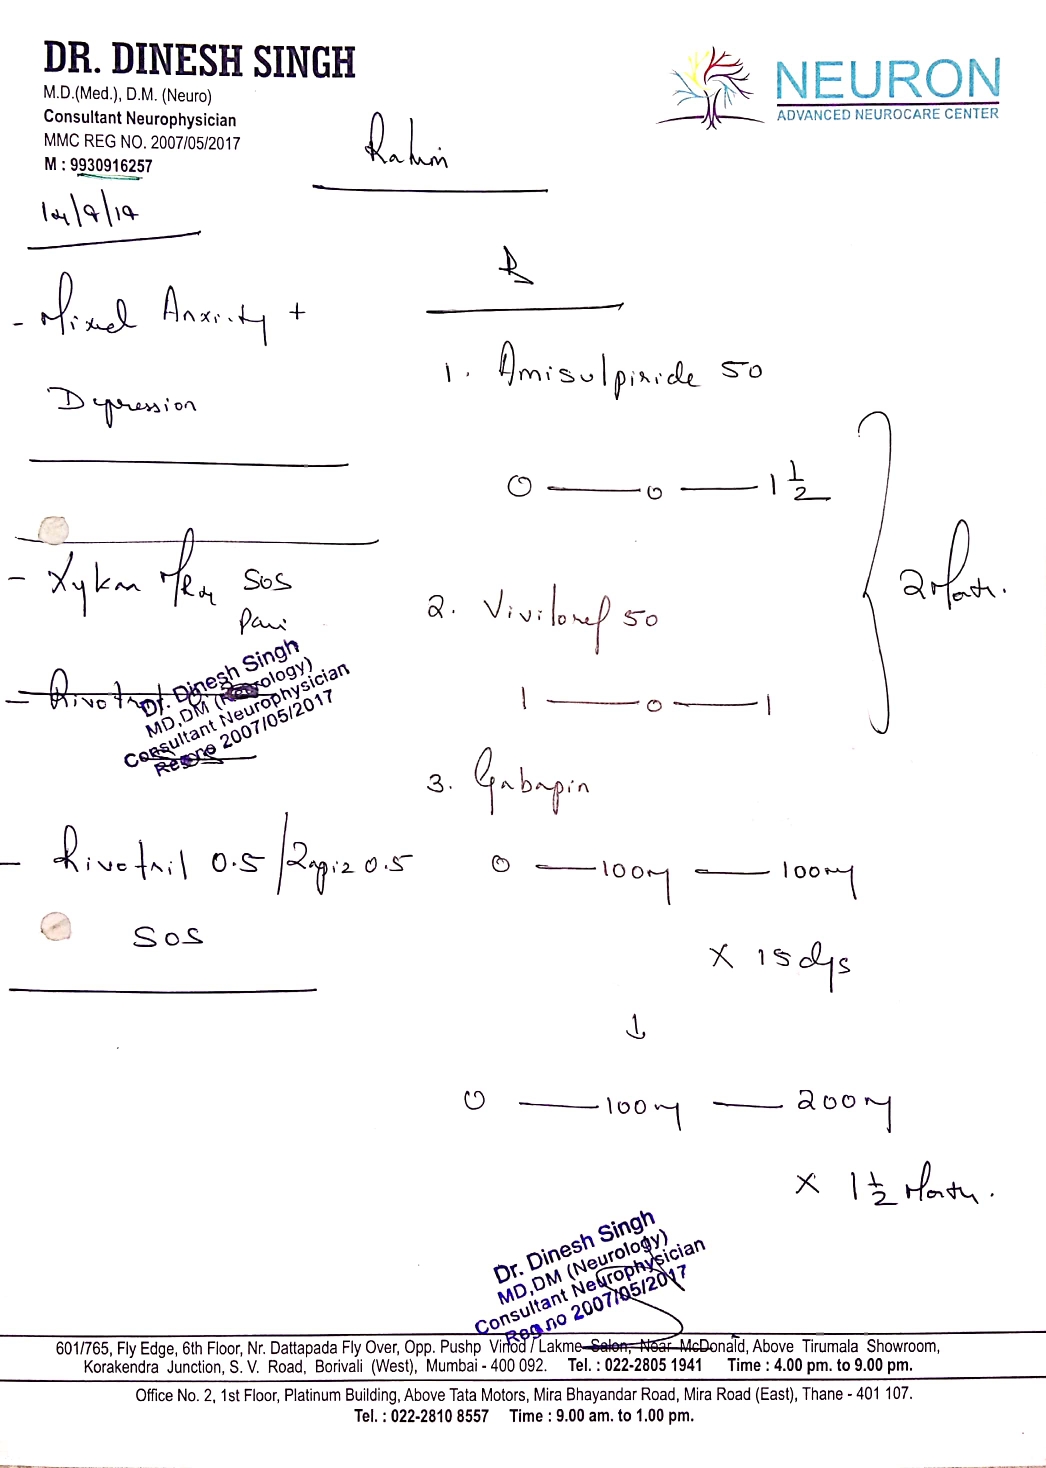 DR. DINESH SINGH
M.D.(Med.), D.M. (Neuro)
Consultant Neurophysician
MMC REG NO. 2007/05/2017
M : 9930916257
NEURON
ADVANCED NEUROCARE CENTER
Rahim
- Mixed Anxiety +
Depression
- SOS
Pain
- Rivotril
Dr. Dinesh Singh
MD,DM (Neurology)
Consultant Neurophysician
Reg no 2007/05/2017
- Rivotril 0.5 / 0.5
SOS
℞
1. Amisulpiride 50
0 — 0 — 1 1/2
2. 50
1 — 0 — 1
2 Month.
3. Gabapin
0 — 100mg — 100mg
X 15 dys
↓
0 — 100mg — 200mg
X 1 1/2 Month.
Dr. Dinesh Singh
MD,DM (Neurology)
Consultant Neurophysician
Reg.no 2007/05/2017
601/765, Fly Edge, 6th Floor, Nr. Dattapada Fly Over, Opp. Pushp Vinod / Lakme Salon, Near McDonald, Above Tirumala Showroom,
Korakendra Junction, S. V. Road, Borivali (West), Mumbai - 400 092. Tel. : 022-2805 1941 Time : 4.00 pm. to 9.00 pm.
Office No. 2, 1st Floor, Platinum Building, Above Tata Motors, Mira Bhayandar Road, Mira Road (East), Thane - 401 107.
Tel. : 022-2810 8557 Time : 9.00 am. to 1.00 pm.